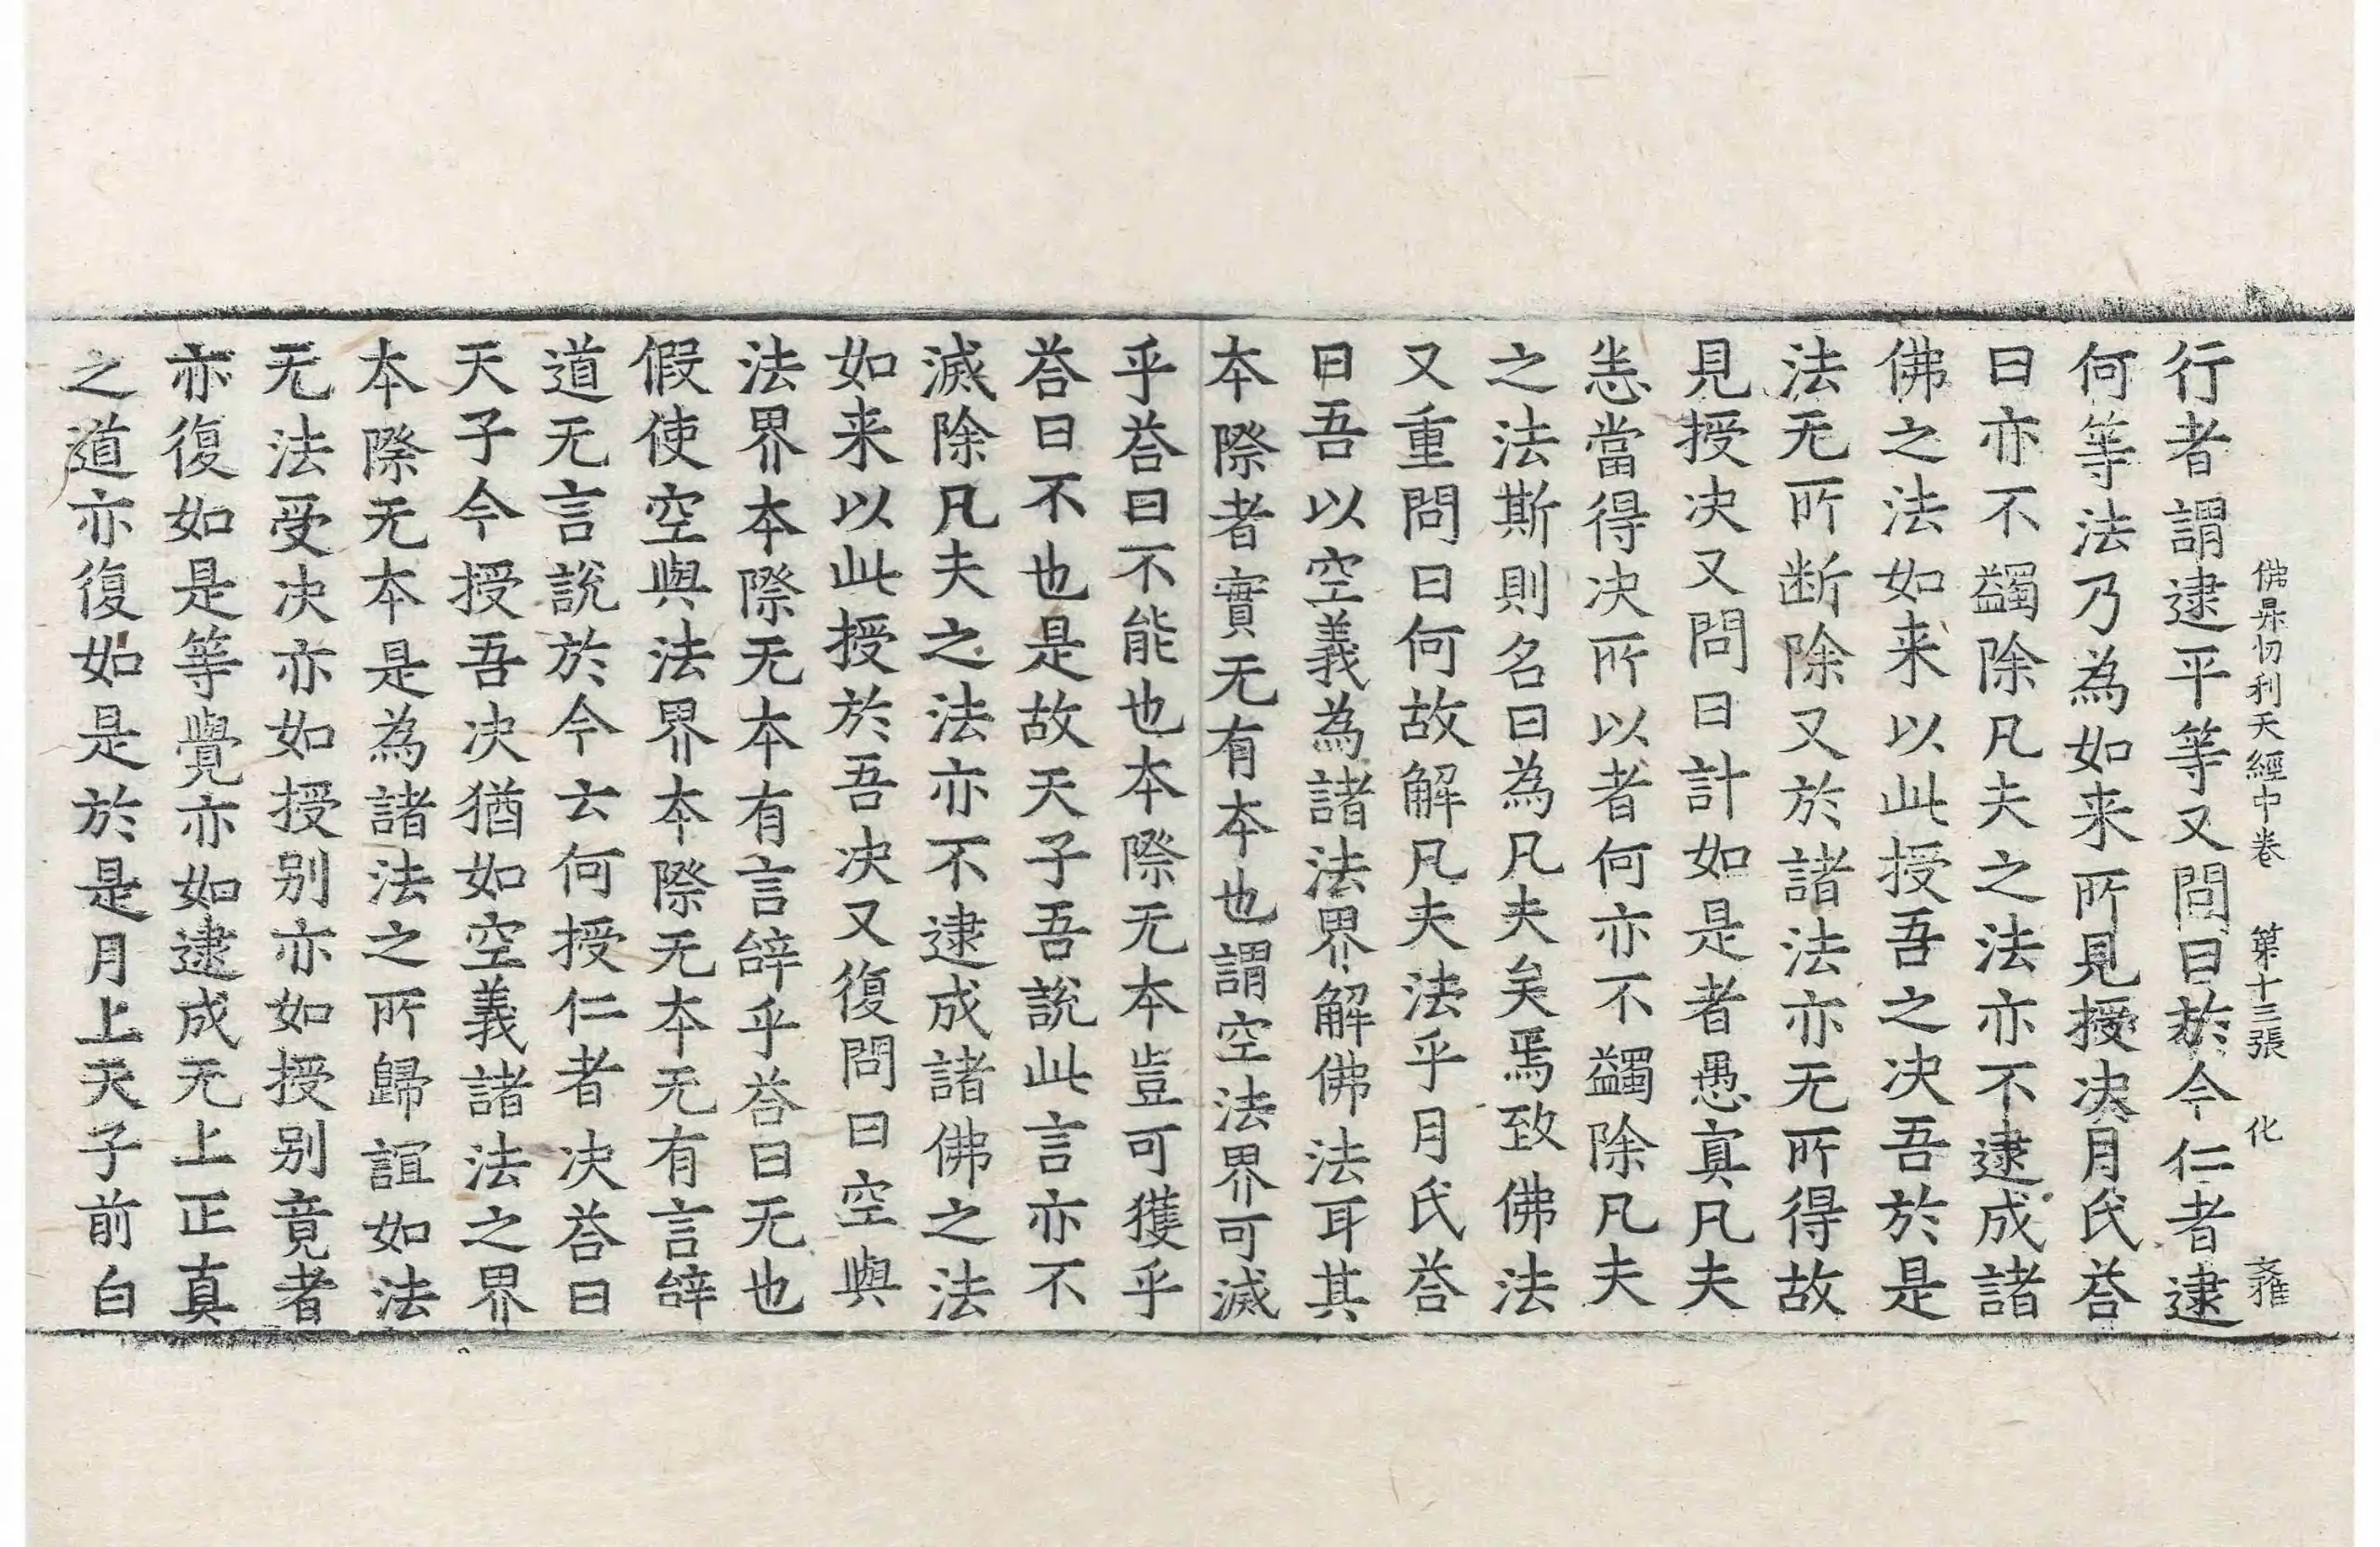 佛昇忉利天經中卷 第十三張 化 文雅
行者謂逮平等又問曰於今仁者逮
何等法乃為如来所見授决月氏荅
曰亦不蠲除凡夫之法亦不逮成諸
佛之法如来以此授吾之决吾於是
法无所断除又於諸法亦无所得故
見授决又問曰計如是者愚冥凡夫
恙當得决所以者何亦不蠲除凡夫
之法斯則名曰為凡夫矣焉致佛法
又重問曰何故解凡夫法乎月氏荅
曰吾以空義為諸法界解佛法耳其
本際者實无有本也謂空法界可滅
乎荅曰不能也本際无本豈可獲乎
荅曰不也是故天子吾說此言亦不
滅除凡夫之法亦不逮成諸佛之法
如来以此授於吾决又復問曰空與
法界本際无本有言辝乎荅曰无也
假使空與法界本際无本无有言辝
道无言說於今云何授仁者决荅曰
天子今授吾决猶如空義諸法之界
本際无本是為諸法之所歸誼如法
无法受决亦如授别亦如授别竟者
亦復如是等覺亦如逮成无上正真
之道亦復如是於是月上天子前白